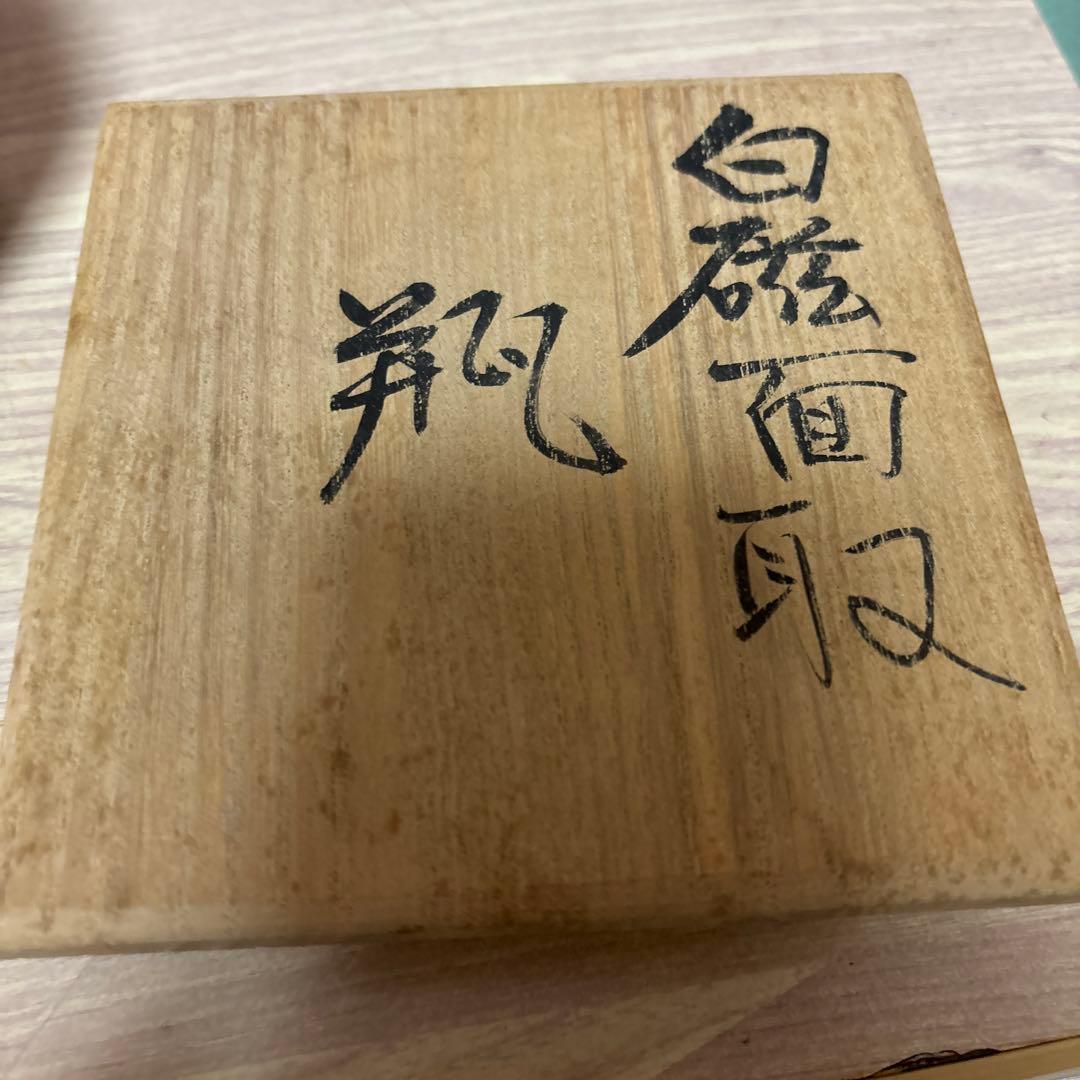 白磁面取
瓶